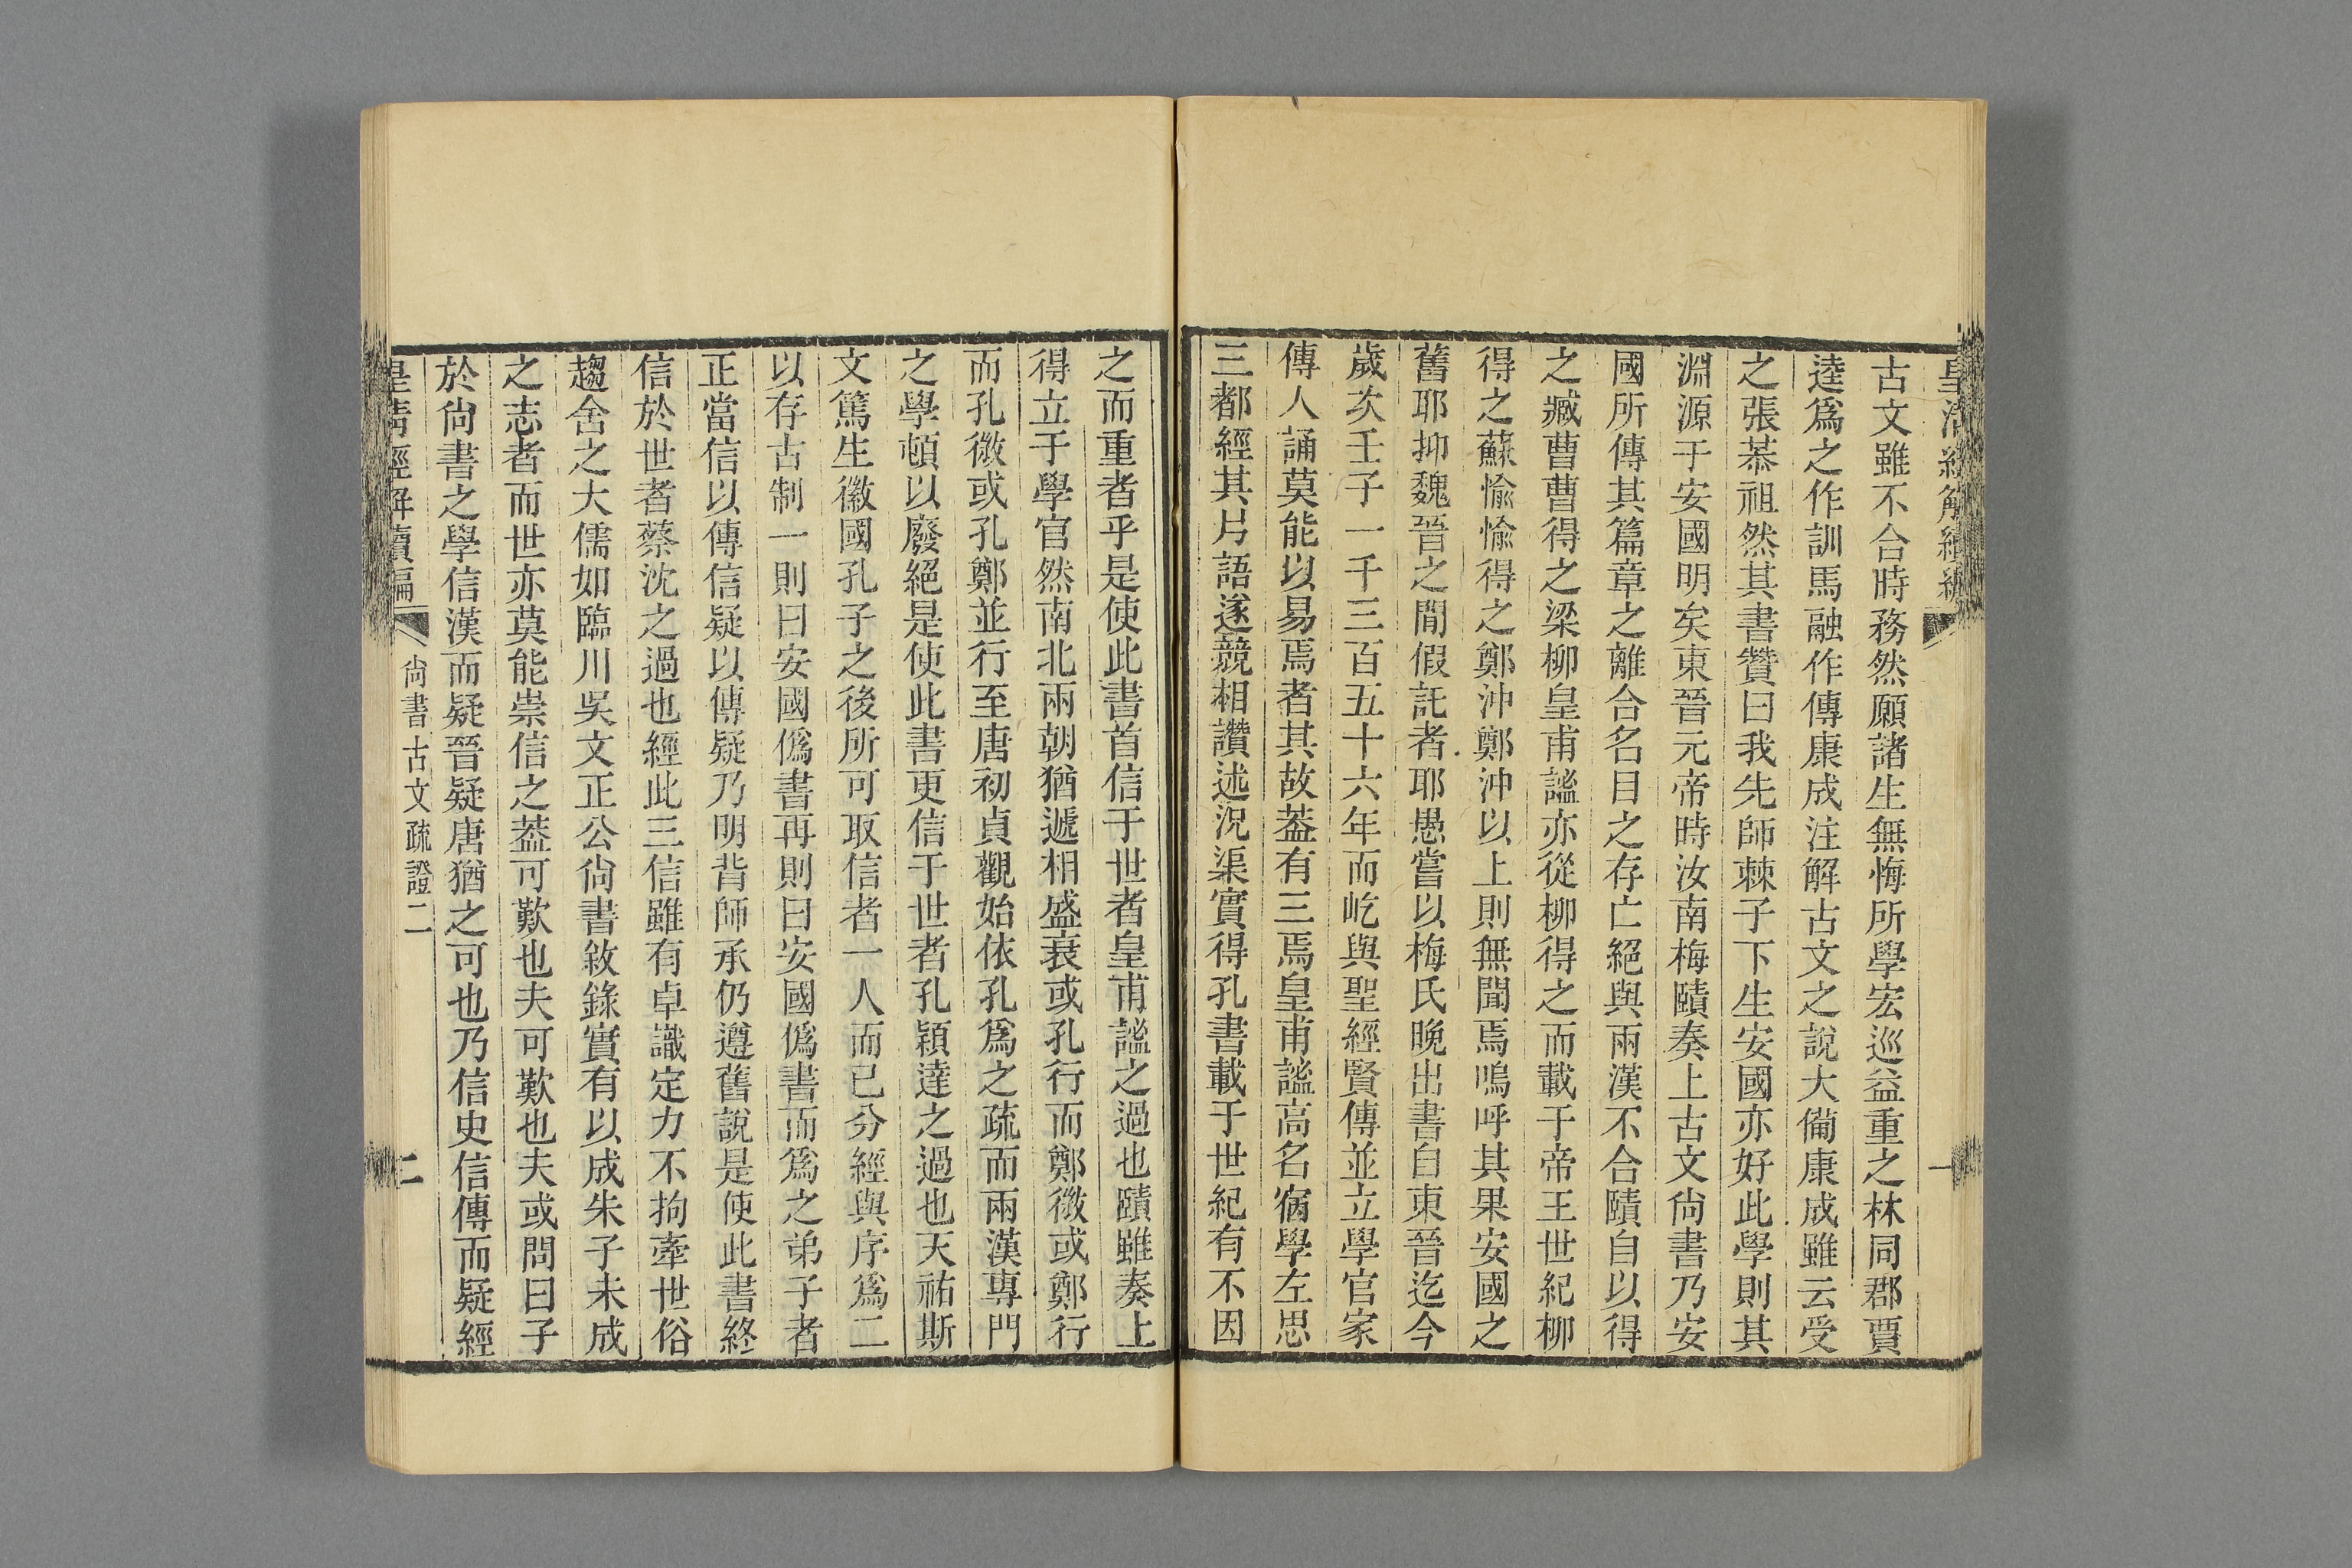 皇清經解續編
一
古文雖不合時務然願諸生無悔所學宏巡益重之林同郡賈
逵爲之作訓馬融作傳康成注解古文之說大備康成雖云受
之張恭祖然其書贊曰我先師棘子下生安國亦好此學則其
淵源于安國明矣東晉元帝時汝南梅賾奏上古文尚書乃安
國所傳其篇章之離合名目之存亡絕與兩漢不合賾自以得
之臧曹曹得之梁柳皇甫謐亦從柳得之而載于帝王世紀柳
得之蘇愉愉得之鄭沖鄭沖以上則無聞焉嗚呼其果安國之
舊耶抑魏晉之閒假託者耶愚嘗以梅氏晚出書自東晉迄今
歲次壬子一千三百五十六年而屹與聖經賢傳並立學官家
傳人誦莫能以易焉者其故葢有三焉皇甫謐高名宿學左思
三都經其片語遂競相讚述況渠實得孔書載于世紀有不因
之而重者乎是使此書首信于世者皇甫謐之過也賾雖奏上
得立于學官然南北兩朝猶遞相盛衰或孔行而鄭微或鄭行
而孔微或孔鄭並行至唐初貞觀始依孔爲之疏而兩漢專門
之學頓以廢絕是使此書更信于世者孔穎達之過也天祐斯
文篤生徽國孔子之後所可取信者一人而已分經與序爲二
以存古制一則曰安國僞書再則曰安國僞書而爲之弟子者
正當信以傳信疑以傳疑乃明背師承仍遵舊說是使此書終
信於世者蔡沈之過也經此三信雖有卓識定力不拘牽世俗
趨舍之大儒如臨川吳文正公尚書敘錄實有以成朱子未成
之志者而世亦莫能崇信之葢可歎也夫可歎也夫或問曰子
於尚書之學信漢而疑晉疑唐猶之可也乃信史信傳而疑經
皇清經解續編
尚書古文疏證二
二